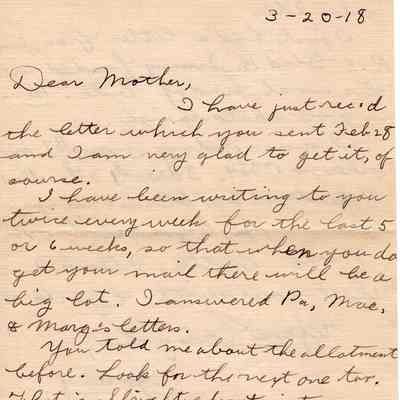 3-20-18
Dear Mother,
I have just rec'd
the letter which you sent Feb 28
and I am very glad to get it, of
course.
I have been writing to you
twice every week for the last 5
or 6 weeks, so that when you do
get your mail there will be a
big lot. I answered Pa, Mae,
& Marg's letters.
You told me about the allotment
before. Look for the next one too.